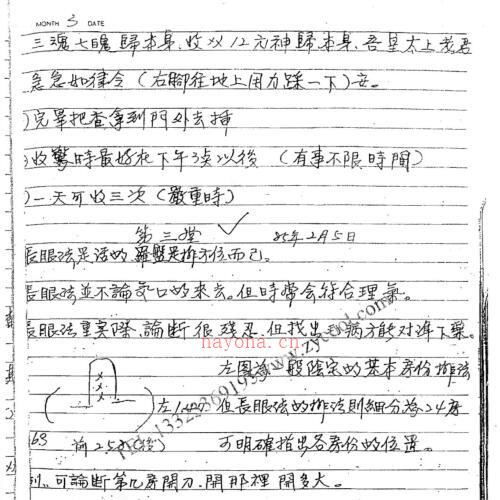 MONTH 3 DATE
三魂七魄歸本身.收以12元神歸本身.吾皇太上老君
急急如律令(右腳在地上用力踩一下)安。
)完畢把香拿到門外去插
)收驚時最好在下午3點以後 (有事不限時間)
)一天可收三次(嚴重時)
第三堂 85年2月5日
長眼法是活的.羅盤是排方位而已。
長眼法並不論 口的來去。但時常會符合理氣。
長眼法重實際,論斷很殘忍,但找出 病方能对症下藥。
左图為一般陰宅的基本房份排法
左 但長眼法的排法則細分為24房
前 2.5.8 可明確指出各房份的位置。
可論斷第几房開刀.開那裡 開多大。
nayona.cn
www.zycool.com
13323691935